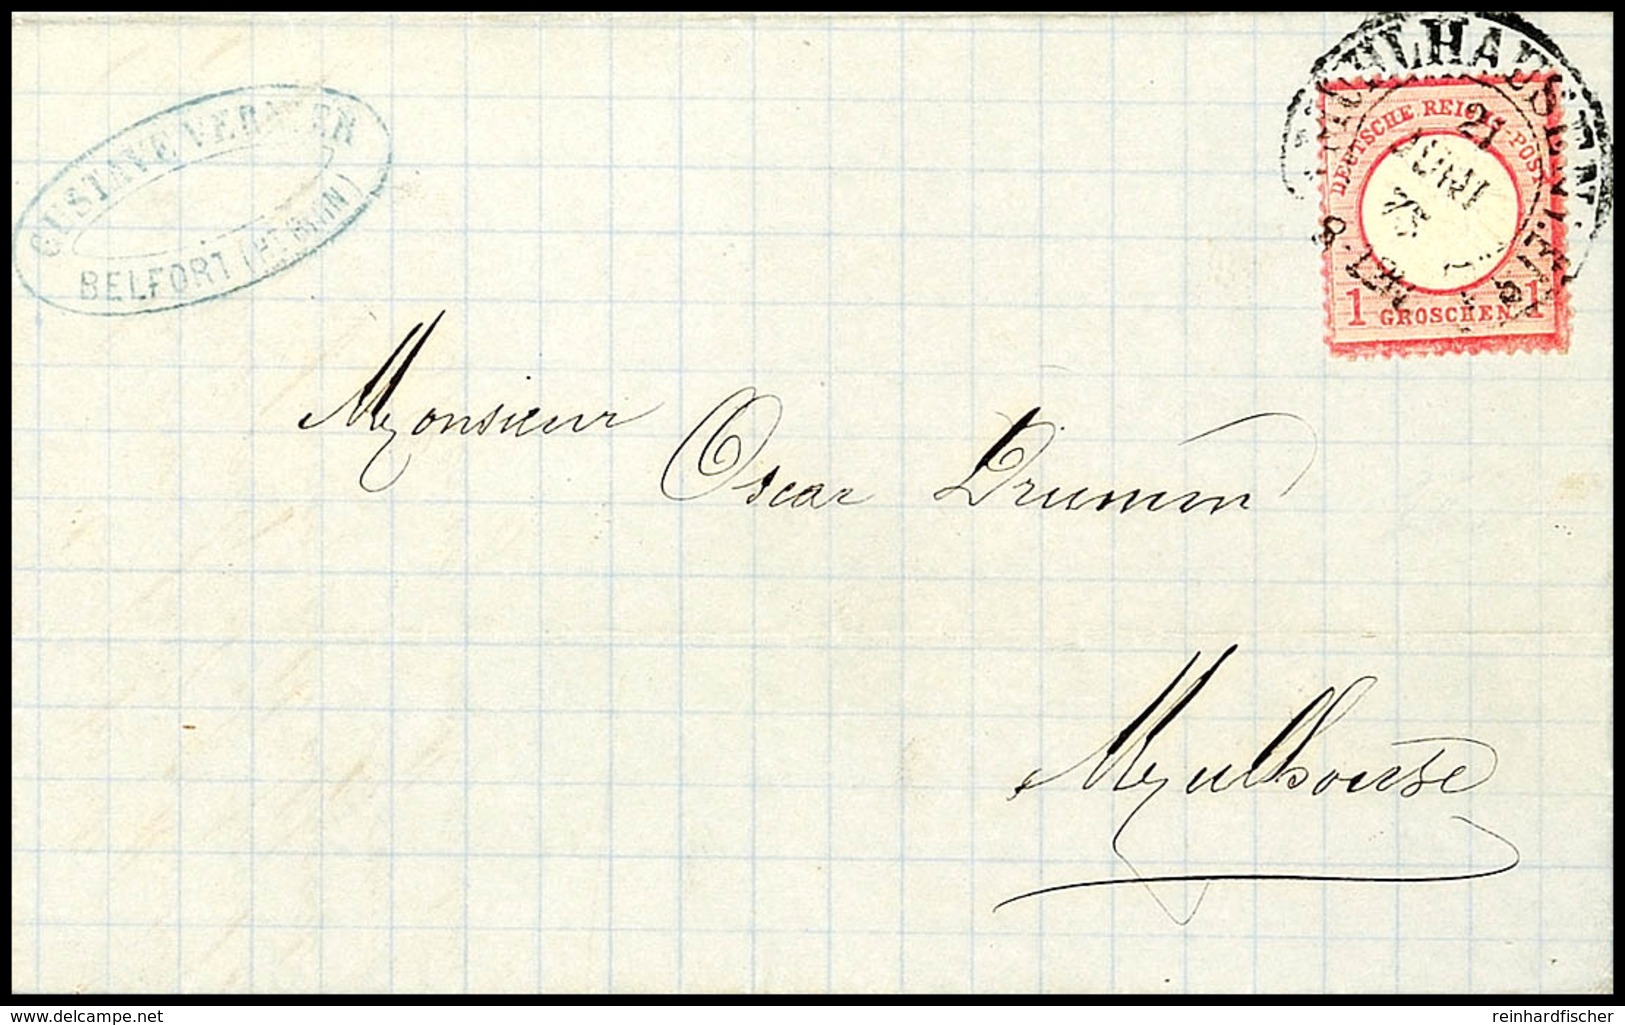 GUSTAVE VERNIER
BELFORT (HT RHIN)
MUELHAUSEN
21
JUNI
75
DEUTSCHE REICHS-POST
1 GROSCHEN 1
Monsieur
Oscar Drumm
Mulhouse
delcampe.net
reinhardfischer